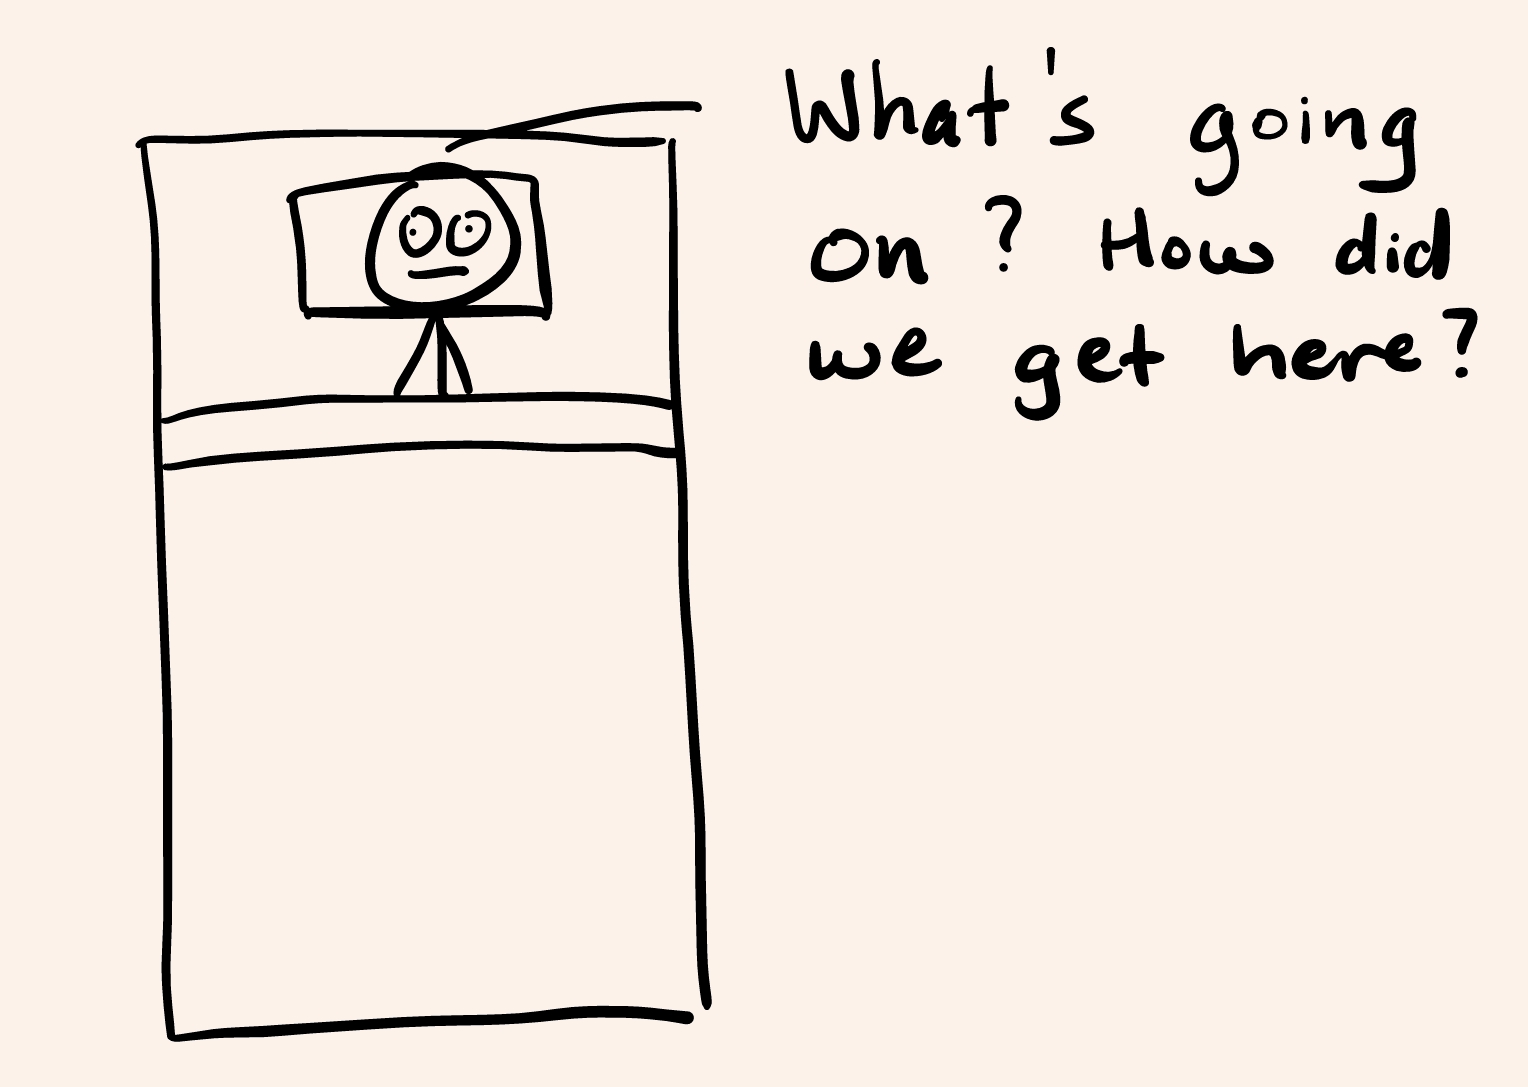 What's going
on? How did
we get here?